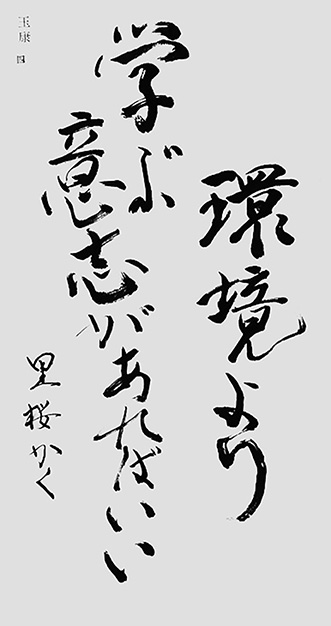 環境より
学ぶ
意志があればいい
里桜かく
玉康
四